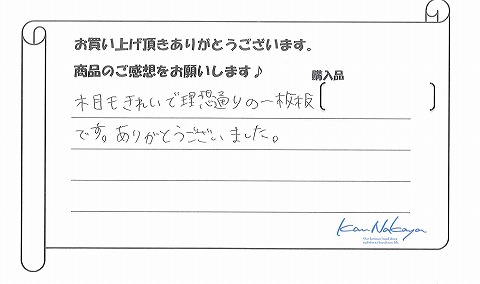 お買い上げ頂きありがとうございます。
商品のご感想をお願いします♪
購入品
木目もきれいで理想通りの一枚板
です。ありがとうございました。
KanNakaya